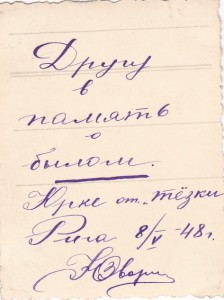 Другу
в
память
о
былом.
Юрке от тёзки
Рига 8/V-48 г.